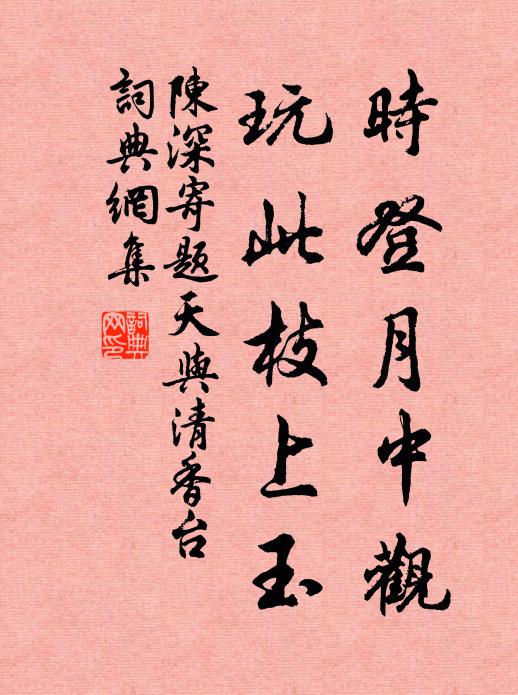 時登月中觀
玩此枝上玉
陳深寄題天與清香台
詞典網集
詞典
网印